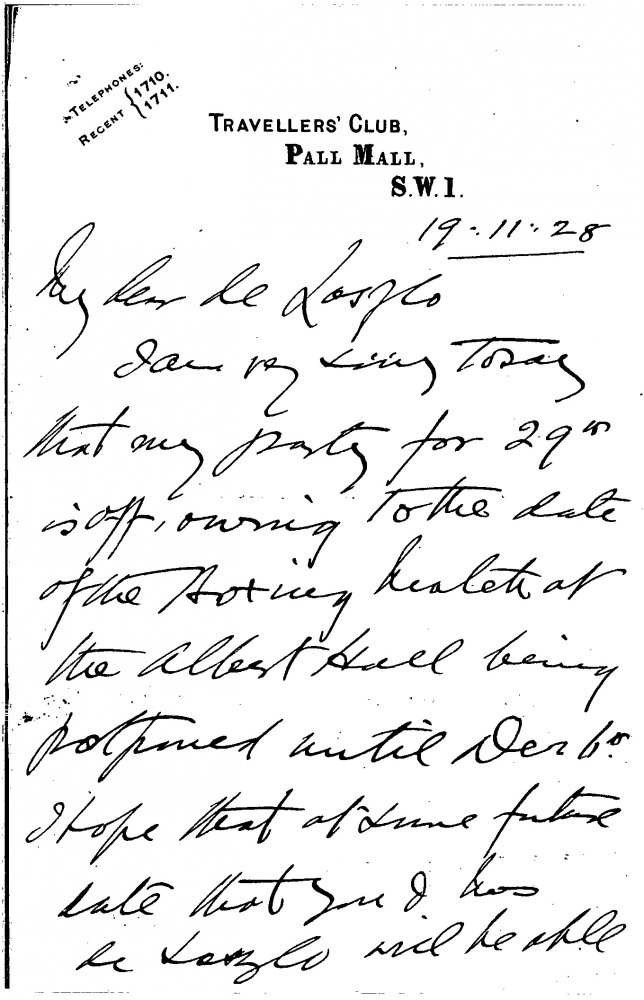 TELEPHONES:
REGENT { 1710.
1711.
TRAVELLERS' CLUB,
PALL MALL,
S.W.1.
19.11.28
My dear de Laszlo
I am very sorry to say
that my party for 29th
is off, owing to the date
of the Boxing Match at
the Albert Hall being
postponed until Dec 6th.
I hope that at some future
date that you & Mrs
de Laszlo will be able